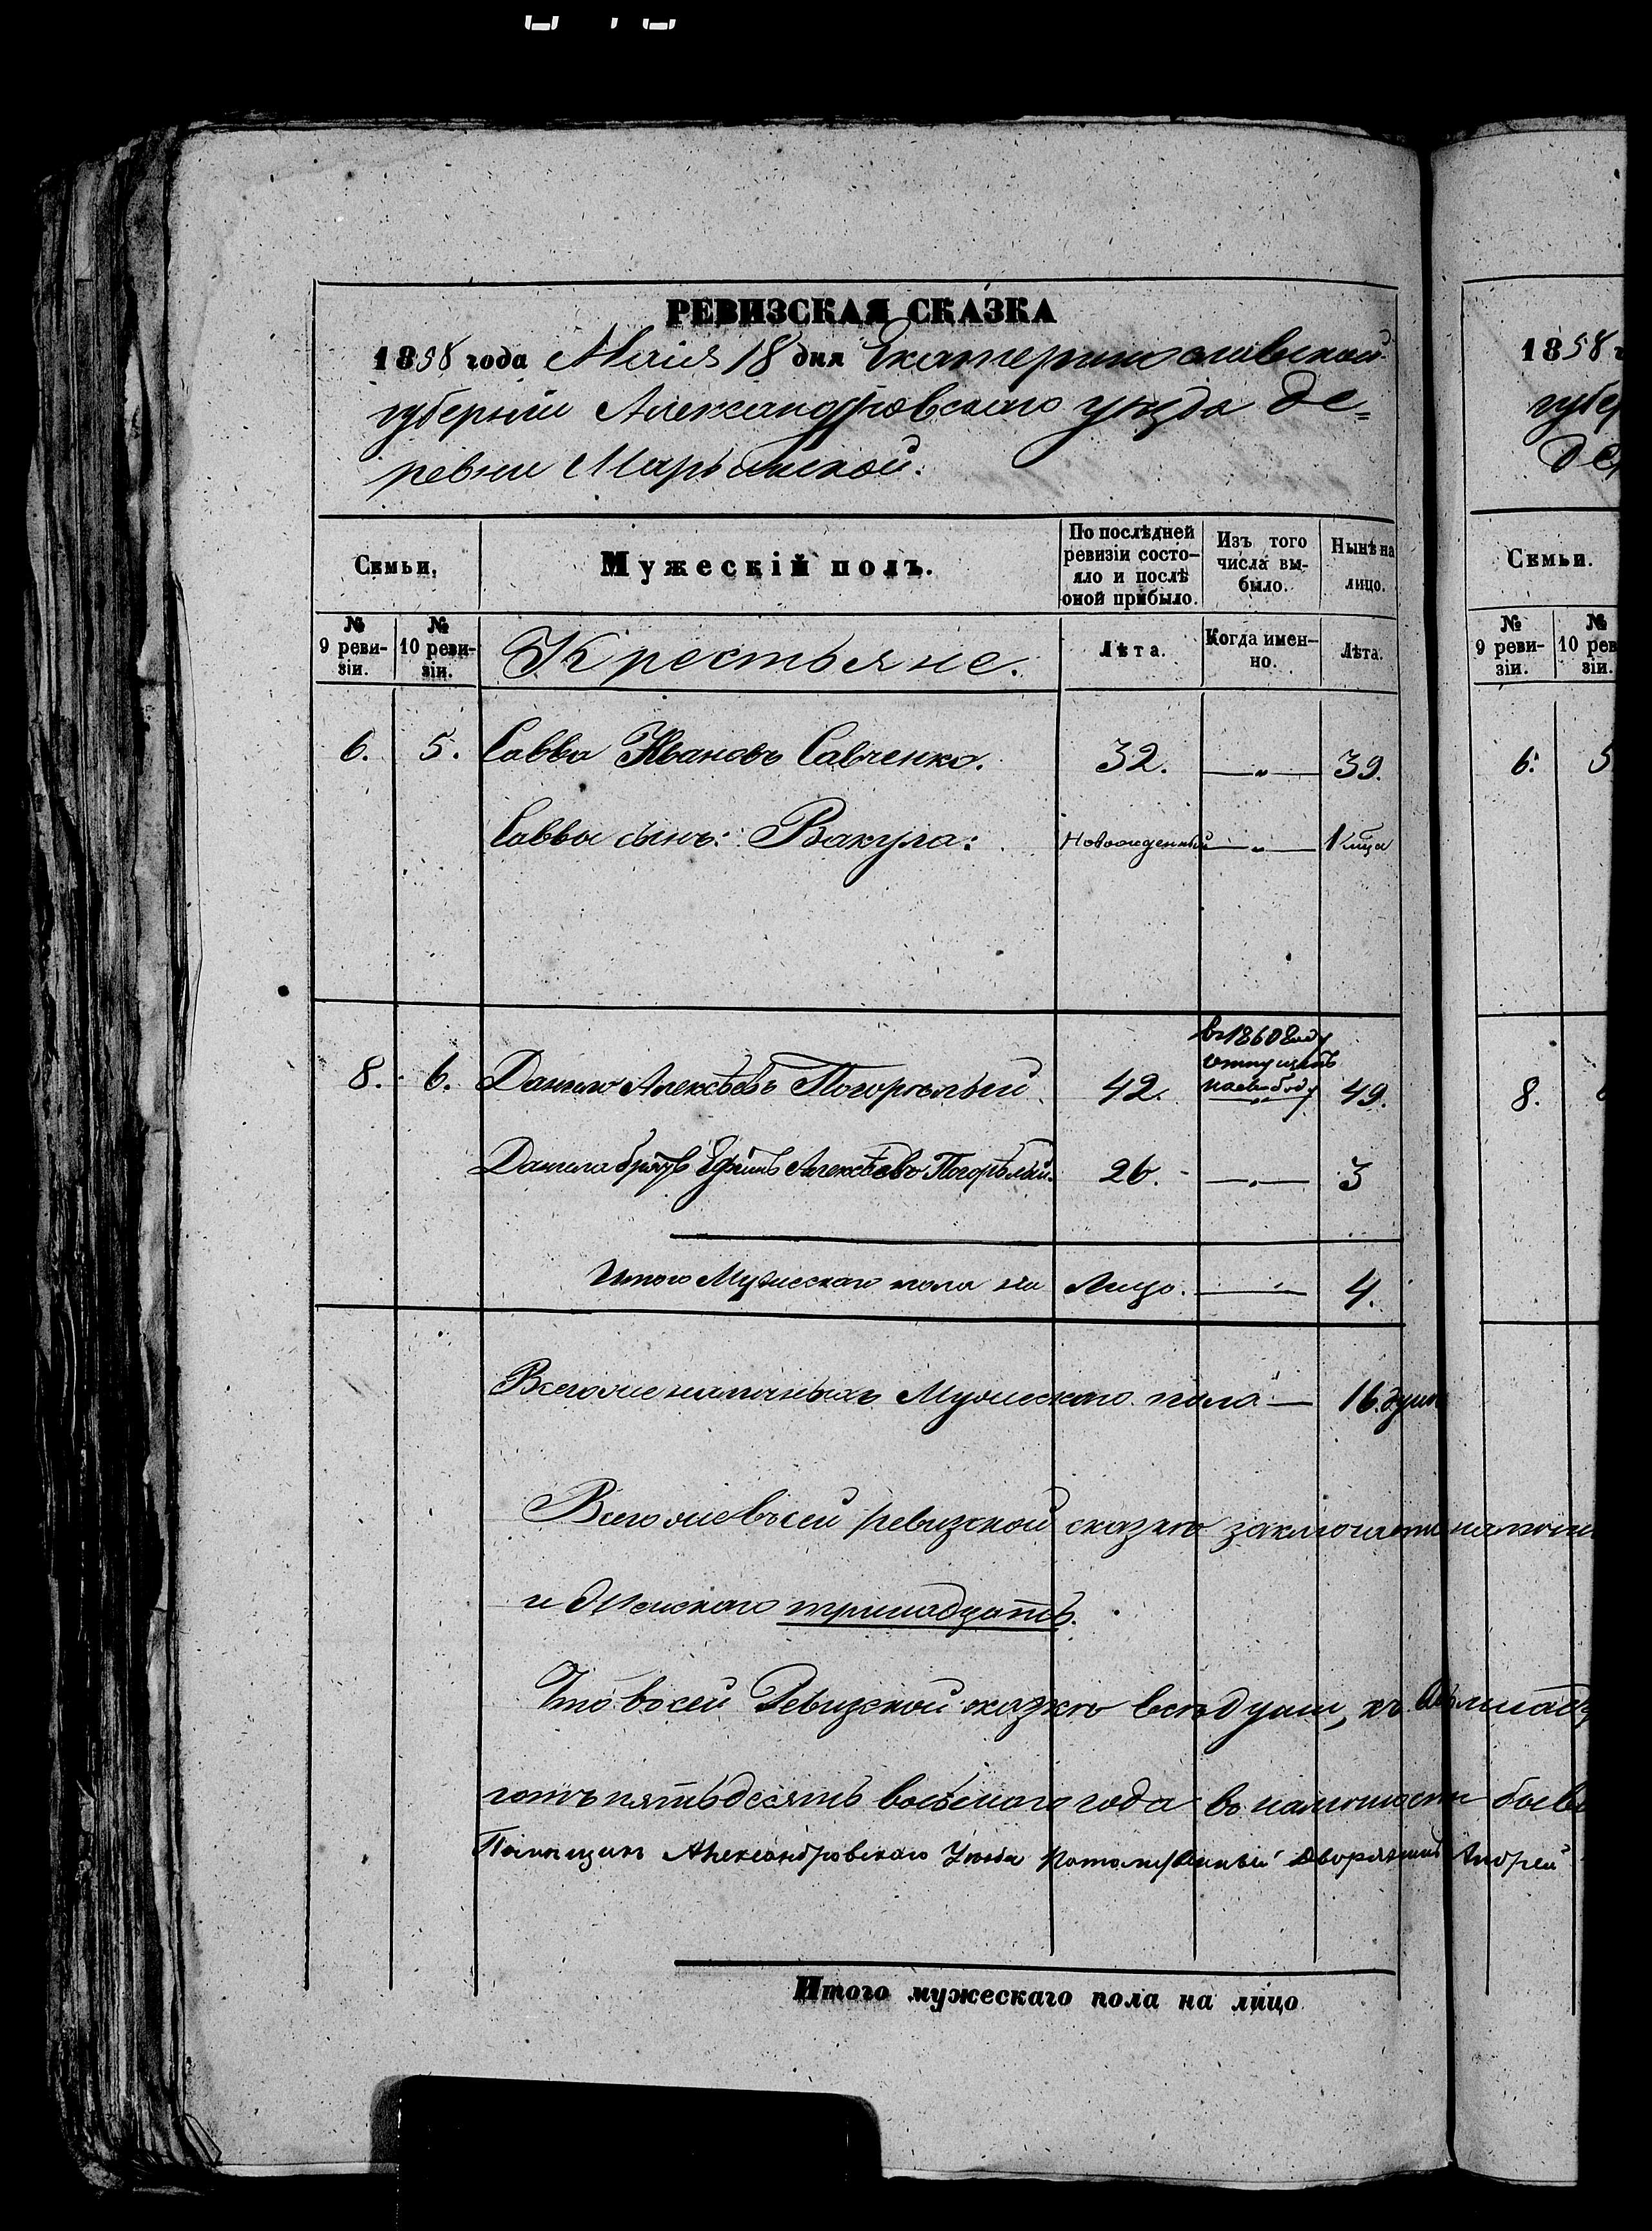 РЕВИЗСКАЯ СКАЗКА
1858 года Маія 18 дня Екатеринославской
губерніи Александровскаго уѣзда де=
ревни Марьѣнской.
Семьи,
Мужескій полъ.
По послѣдней ревизіи состо-яло и послѣ оной прибыло.
Изъ того числа вы-было.
Нынѣ на лицо.
№ 9 реви-зіи.
№ 10 реви-зіи.
Крестьяне.
Лѣта.
Когда имен-но.
Лѣта.
6. 5. Савва Ивановъ Савченко. 32. —„— 39.
Саввы сынъ: Вакула: Новорожденный —„— 1
8. 6. Данило Алексѣевъ Погорѣлый 42. въ 1860 году отпущенъ на свободу 49.
Данила братъ Ефимъ Алексѣевъ Погорѣлый. 26. —„— 3
Итого Мужескаго пола на Лицо. — 4.
Всего же наличныхъ Мужескаго пола — 16. душъ
Всего же въ сей ревизской сказкѣ
и Женскаго тринадцать.
Что въ сей Ревизской сказкѣ всѣ души, къ
сотъ пятьдесятъ восьмаго года въ наличности
Помѣщикъ Александровскаго Уѣзда Потомственный Дворянинъ Андрей
Итого мужескаго пола на лицо
1858
губер
дер
Семьи.
№ 9 реви-зіи.
№ 10 рев зіи.
6. 5
8.